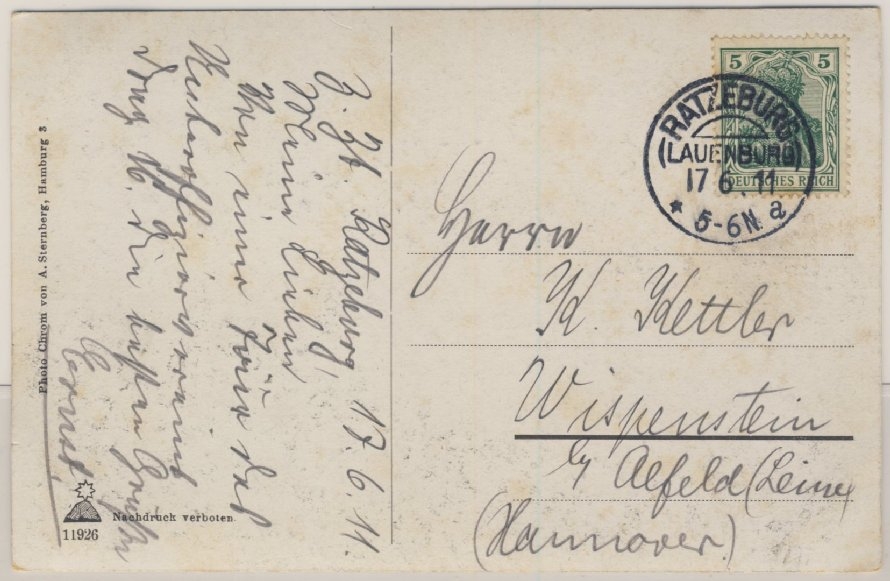 Z. Zt. Ratzeburg, 17. 6. 11.
Meine Lieben!
Von einer Tour des
Unteroffiziervereins
die besten Grüße
Ernst.
Photo Chrom von A. Sternberg, Hamburg 3
Nachdruck verboten.
11926
5 5
DEUTSCHES REICH
RATZEBURG
(LAUENBURG)
17 6. 11
* 5-6N a
Herrn
K. Kettler
Wispenstein
by Alefeld (Leine)
(Hannover.)